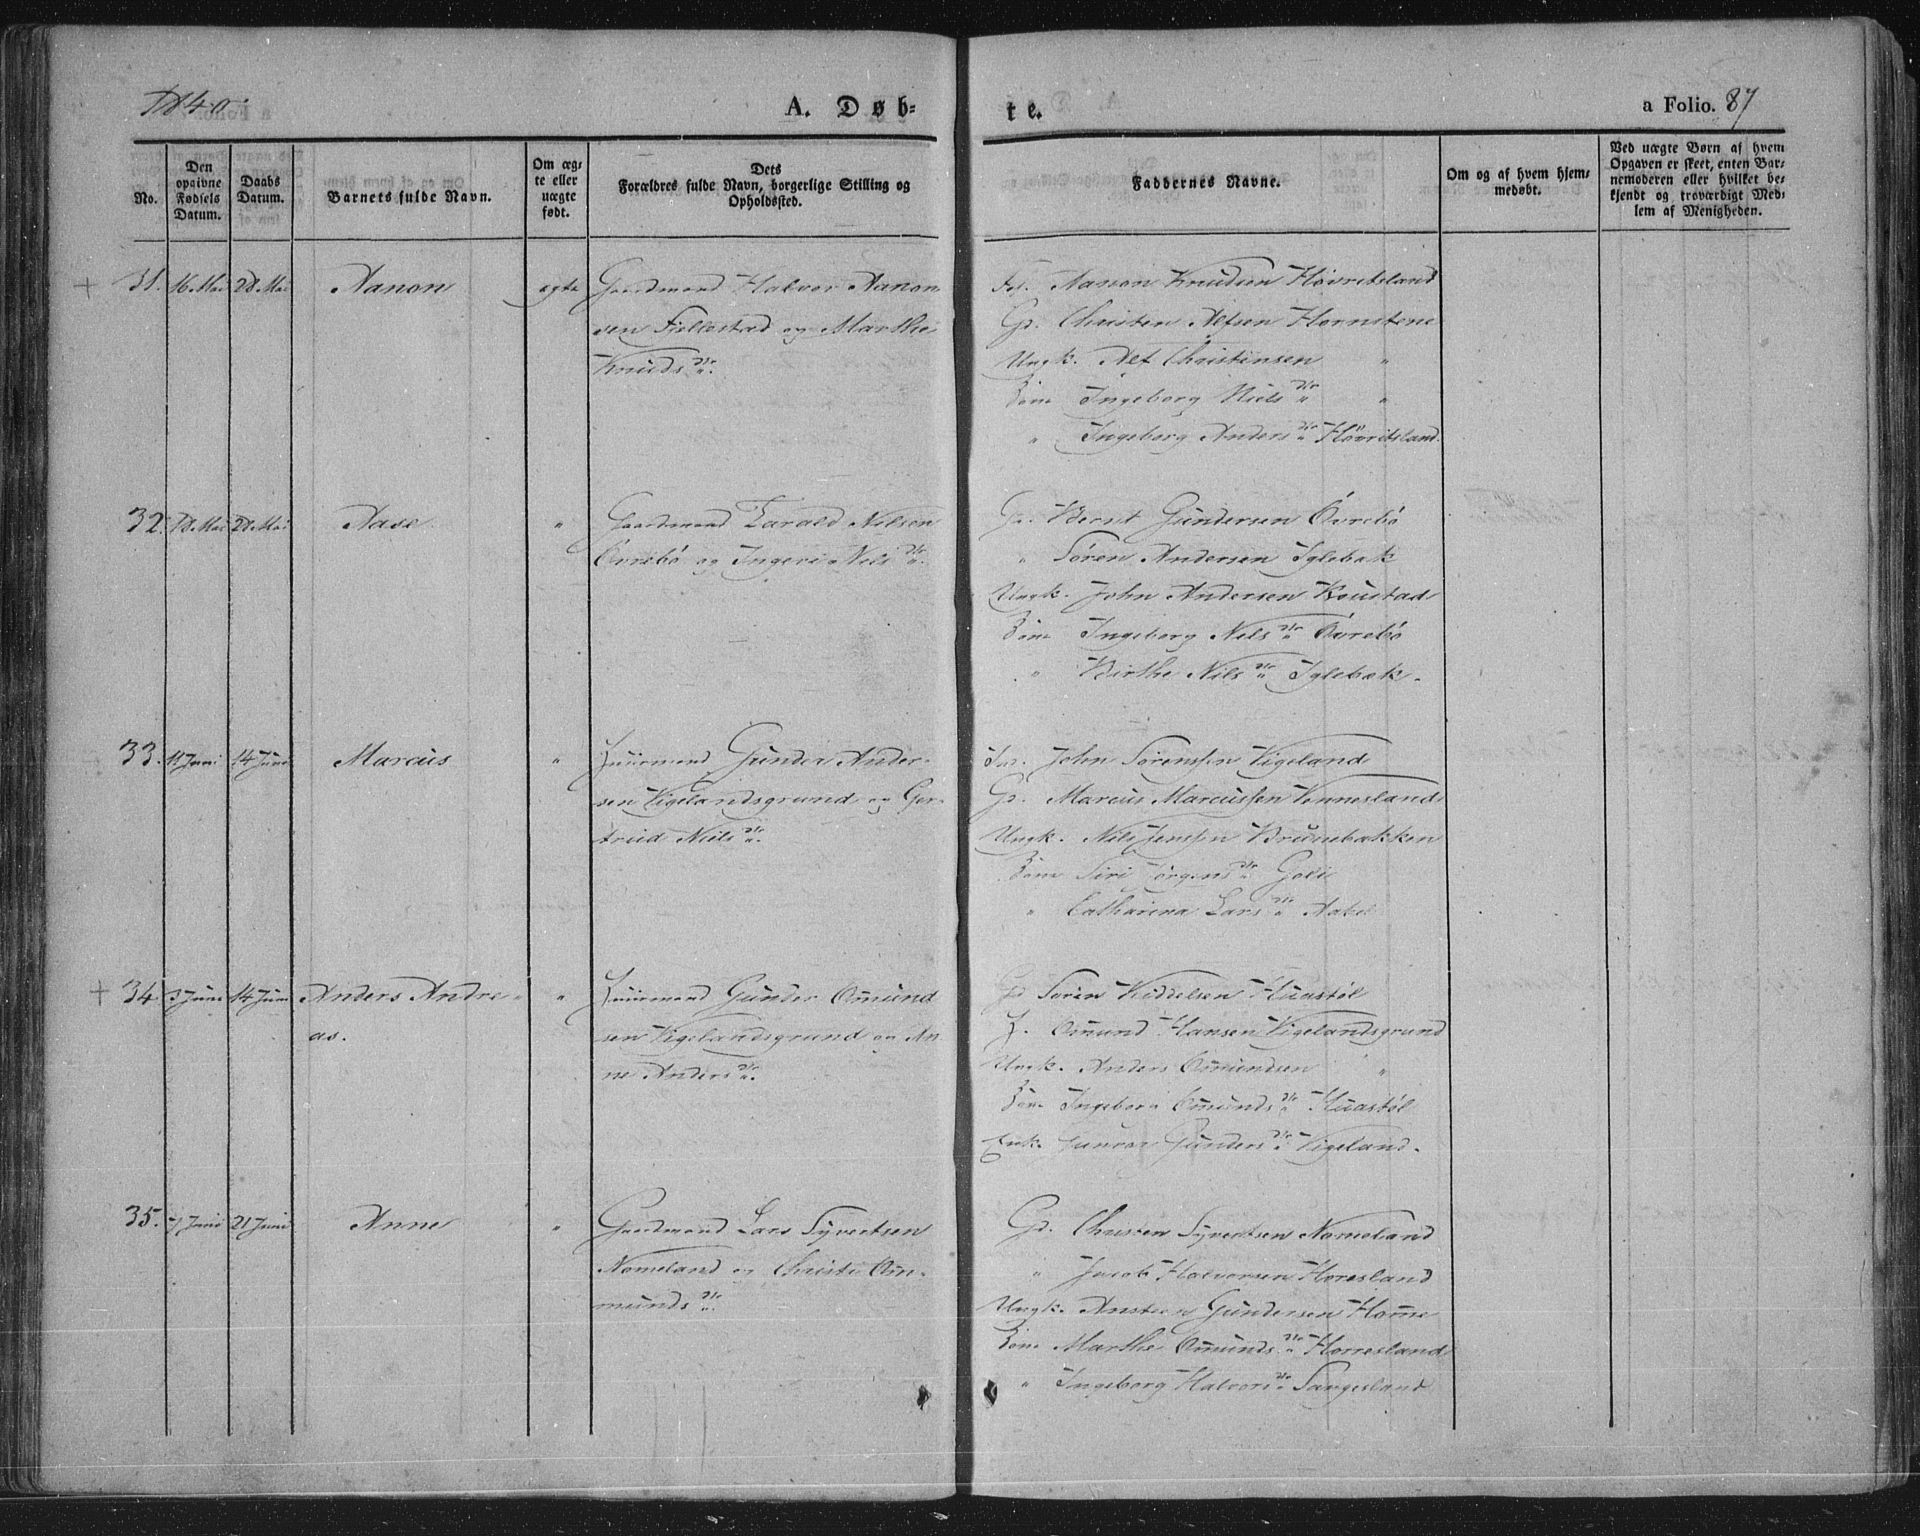 1840.
A. Døb-
te.
a Folio. 87
No.
Den
opgivne
Fødsels
Datum.
Daabs
Datum.
Barnets fulde Navn.
Om æg-
te eller
uægte
født.
Dets
Forældres fulde Navn, borgerlige Stilling og
Opholdssted.
Faddernes Navne.
Om og af hvem hjem-
medøbt.
Ved uægte Børn af hvem
Opgaven er skeet, enten Bar-
nemoderen eller hvilket be-
kjendt og troværdigt Med-
lem af Menigheden.
+ 31. 16 Mai 28 Mai Aanon ægte Gaardmand Halvor Aanon
sen Fiellestad og Marthe
Knuds dtr.
Aanon Knudsen Høvritsland
Gd. Christen Alfsen Hornstene
Ungk. Alf Christensen "
Ingeborg Niels dtr "
" Ingeborg Anders dtr Høvritsland.
32. 18 Mai 28 Mai Aase " Gaardmand Tarald Nilsen
Øvrebö og Ingeri Nils dtr.
Gd. Bernt Gundersen Øvrebö
" Sören Andersen Iglebæk
Ungk. John Andersen Koustad
Ingeborg Nils dtr Øvrebö
" Birthe Nils dtr Iglebæk.
33. 11 Juni 14 Juni Marcus " Huusmand Gunder Ander-
sen Vigelandsgrund og Ger-
trud Niels dtr.
John Sörenssen Vigeland
Gd. Marcus Marcussen Vennesland
Ungk. Nils Jenssen Brunebakken
Siri Jörgens dtr
" Catharina Lars dtr Aabel
+ 34 3 Juni 14 Juni Anders Andre- " Huusmand Gunder Omund
as.
sen Vigelandsgrund og An
ne Anders dtr.
Gd Sören Kiddelsen Huastöl
H. Omund Hansen Vigelandsgrund
Ungk. Anders Omundsen "
Ingeborg Omunds dtr Huastöl
Enk. Gunvor Gunders dtr Vigeland.
35. 7 Juni 21 Juni Anne " Gaardmand Lars Syvertsen
Nomeland og Christi Om-
munds dtr.
Gd. Christen Syvertsen Nomeland
" Jacob Halvorsen Horesland
Ungk. Ansten Gundersen Homme
Marthe Omunds dtr Horresland
" Ingeborg Halvors dtr Sangesland